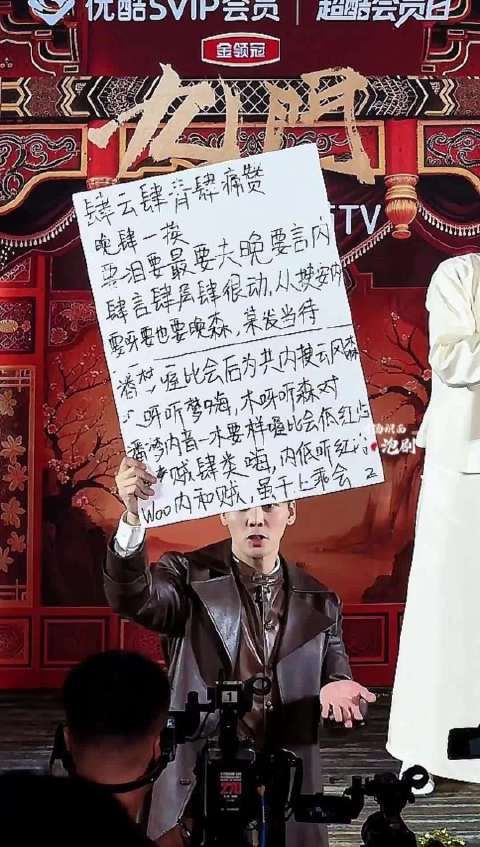 优酷SVIP会员 超酷会员日
金领冠
九门
TV
肆云肆背肆痛赞
晚肆一挨
要泪要最要夫晚要言内
肆言肆屠肆很动,从挨安内
要牙要也要晚森,莱发当待
潘梦 喔比会后为共内摸云风森
呀听梦嗨,木呀听森对
潘湾内音一木要样喔比会低红
贼肆类嗨,内低听红
Woo内和贼,虽干上乖会
泡剧
270